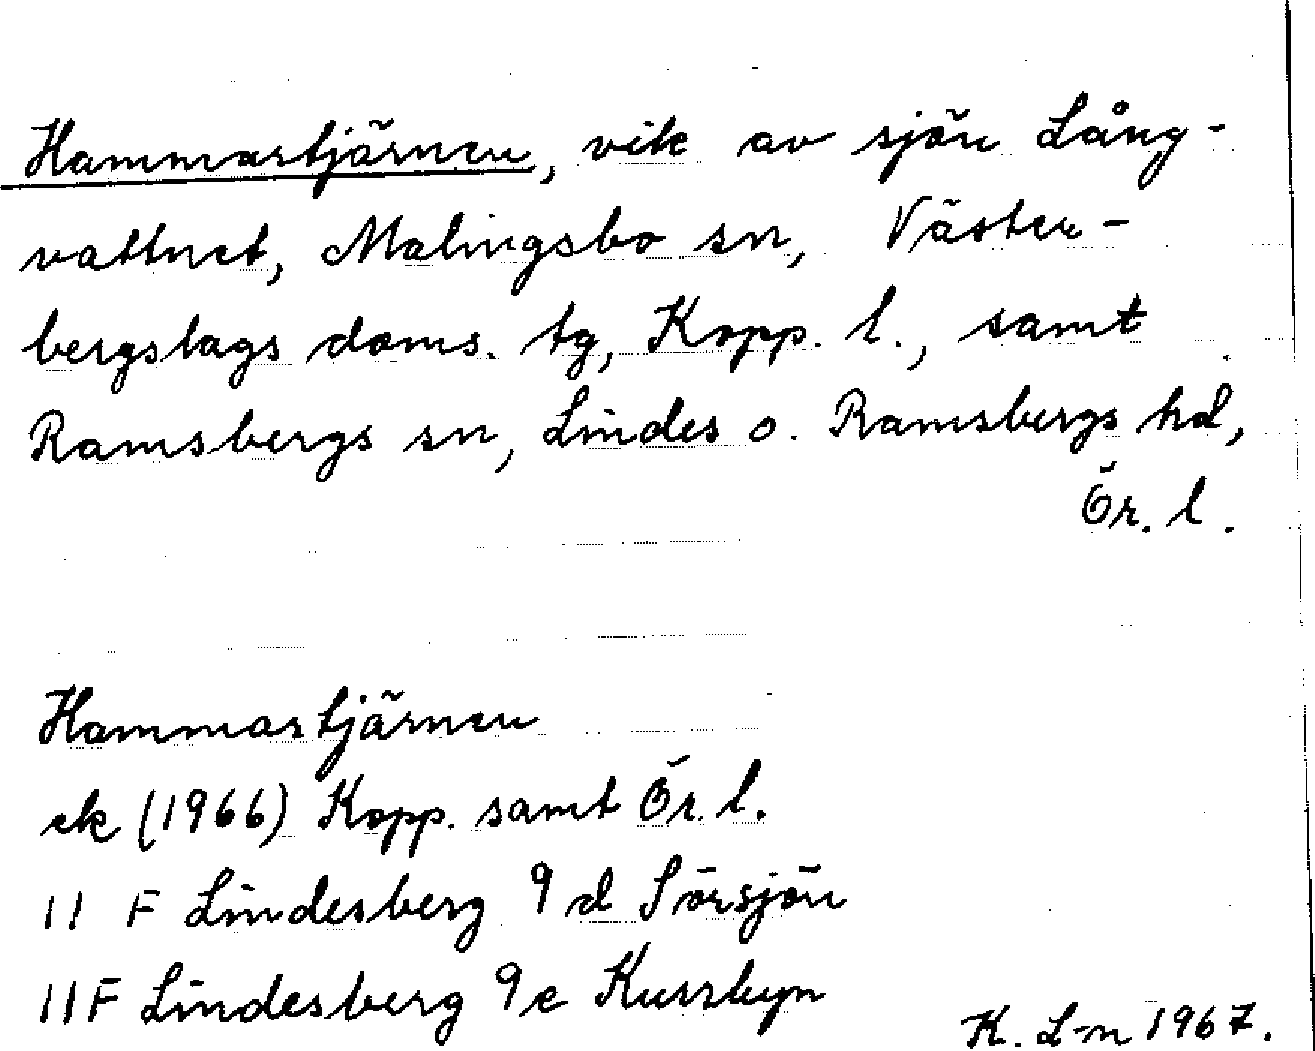 Hammartjärnen, vik av sjön Lång-
vattnet, Malingsbo sn, Väster-
bergslags doms. tg, Kopp. l., samt
Ramsbergs sn, Lindes o. Ramsbergs hd,
Ör. l.
Hammartjärnen
ek (1966) Kopp. samt Ör. l.
11 F Lindesberg 9 d Sörsjön
11F Lindesberg 9e
K. L-n 1967.